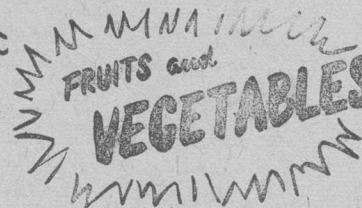 FRUITS and
VEGETABLES